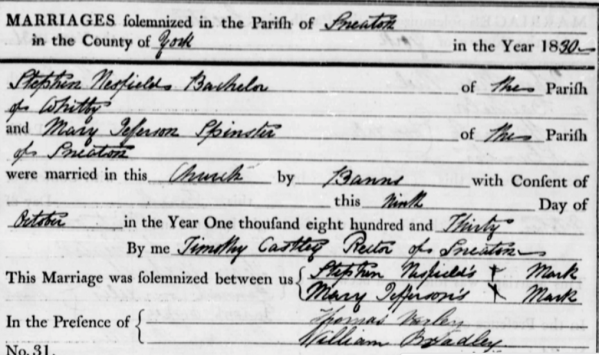 MARRIAGES solemnized in the Parish of Sneaton
in the County of York in the Year 1830
Stephen Nesfield Bachelor of this Parish
of Whitby
and Mary Jefferson Spinster of this Parish
of Sneaton
were married in this Church by Banns with Consent of
this Ninth Day of
October in the Year One thousand eight hundred and Thirty
By me Timothy Castley Rector of Sneaton
This Marriage was solemnized between us { Stephen Nesfield's X Mark
Mary Jefferson's X Mark
In the Presence of { Thomas
William Bradley
No. 31.